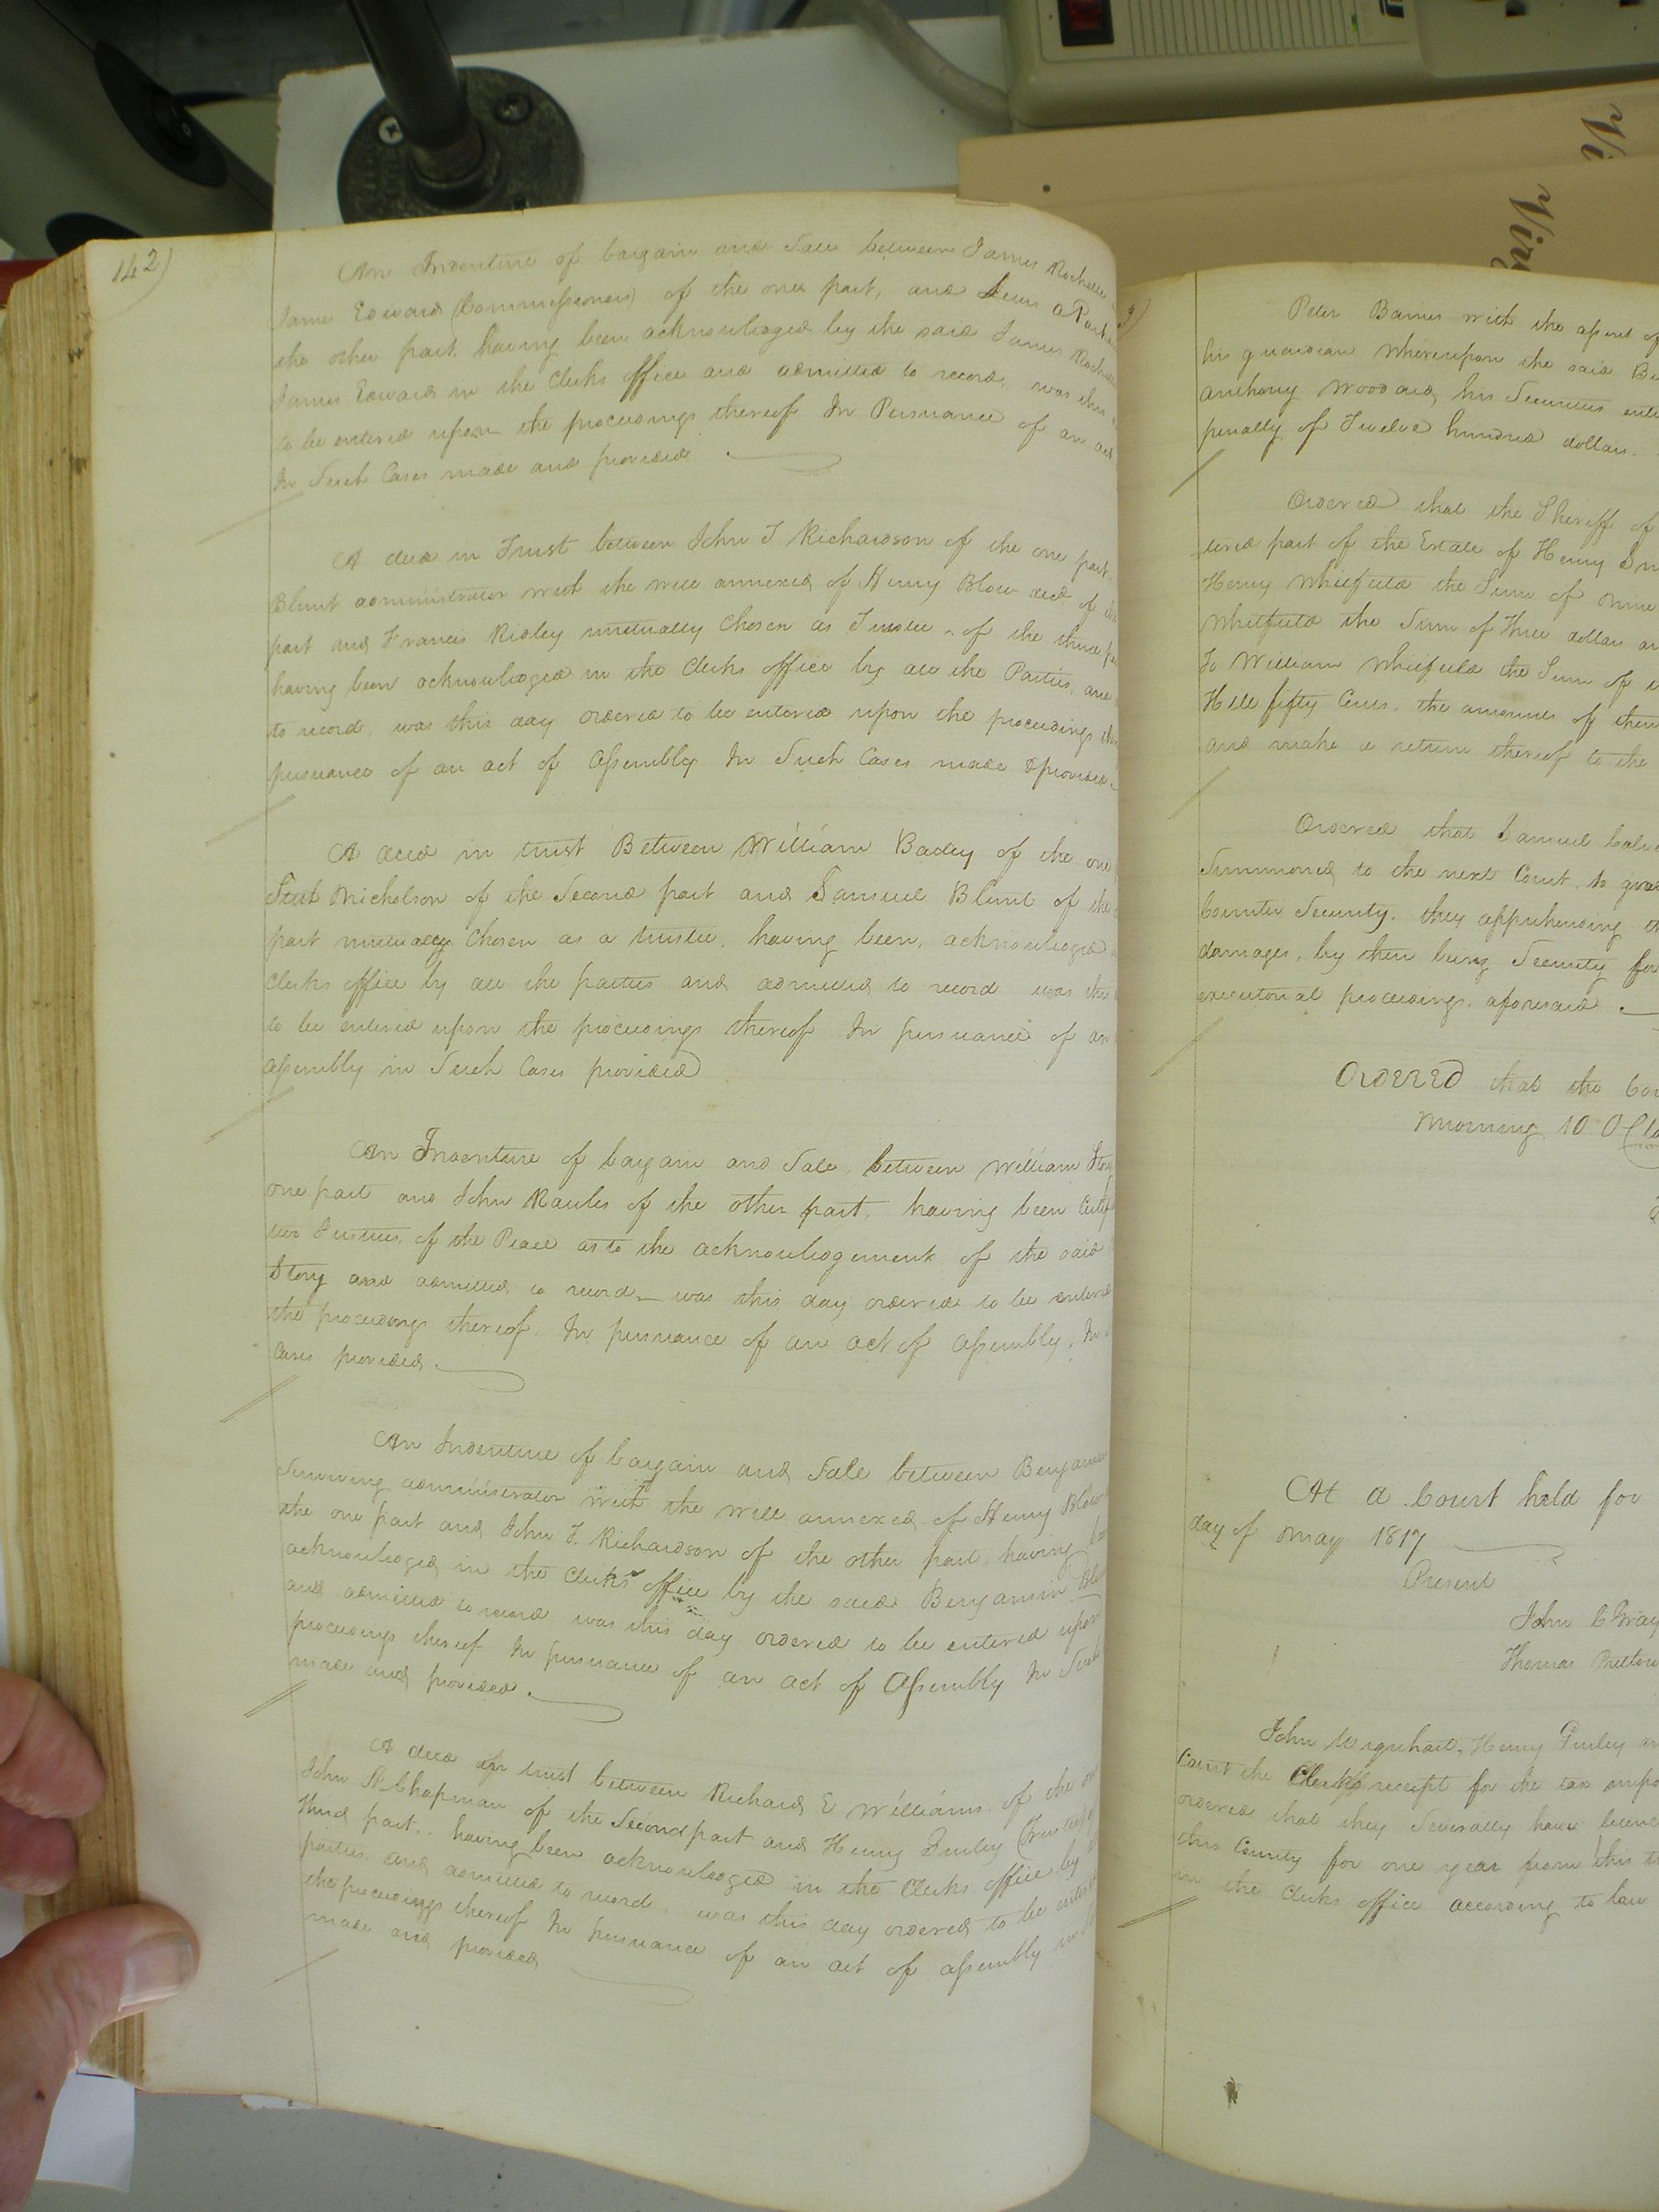 142)
An Indenture of bargain and Sale between James Rochelle
James Edward (Commissioners) of the one part, and
the other part having been acknowledged by the said James Rochelle
James Edward in the Clerks office and admitted to record, was this
to be entered upon the proceedings thereof In Pursuance of an act
In Such Cases made and provided.
A deed in Trust between John T Richardson of the one part
Blunt administrator with the will annexed of Henry Blow decd of
part and Francis Ridley mutually Chosen as Trustee of the third
having been acknowledged in the Clerks office by all the Parties, and
to record, was this day ordered to be entered upon the proceedings
pursuance of an act of Assembly In Such Cases made & provided.
A deed in trust Between William Bailey of the one
Nicholson of the Second part and Samuel Blunt of the
part mutually Chosen as a trustee, having been, acknowledged
Clerks office by all the parties and admitted to record was this
to be entered upon the proceedings thereof In pursuance of an
assembly in Such Cases provided
An Indenture of bargain and Sale, between William Story
one part and John Raules of the other part, having been
two Justices of the Peace as to the acknowledgement of the said
Story and admitted to record was this day ordered to be entered
the proceedings thereof. In pursuance of an act of assembly, In
Cases provided.
An Indenture of bargain and Sale between Benjamin
Surviving administrator with the will annexed of Henry Blow
the one part and John T. Richardson of the other part having
acknowledged in the Clerks office by the said Benjamin
and admitted to record was this day ordered to be entered upon
proceedings thereof In pursuance of an act of Assembly In Such
made and provided.
A deed in trust between Richard E Williams of the
John A Chapman of the Second part and Henry Gurley (Trustee)
third part. having been acknowledged in the Clerks office by
parties and admitted to record, was this day ordered to be
the proceedings thereof In pursuance of an act of assembly
made and provided
3)
Peter Barnes with the assent of
his guardian Whereupon the said
Anthony Woodard, his Securities
penalty of Twelve hundred dollars.
Ordered that the Sheriff of
part of the Estate of Henry
Henry Whitfield the Sum of nine
Whitfield the Sum of Three dollars
To William Whitfield the Sum of
Hill fifty Cents. the amounts of
and make a return thereof to the
Ordered that Samuel
Summoned to the next Court, to
Counter Security. they apprehending
damages, by their being Security for
executorial proceedings aforesaid.
Ordered that the
Morning 10 O
At a Court held for
day of May 1817
Present
John C Gray
Thomas
John Urquhart, Henry Gurley
Court the Clerks receipt for the tax
ordered that they Severally have
this County for one year from this
in the Clerks office according to law
Vi
Virg